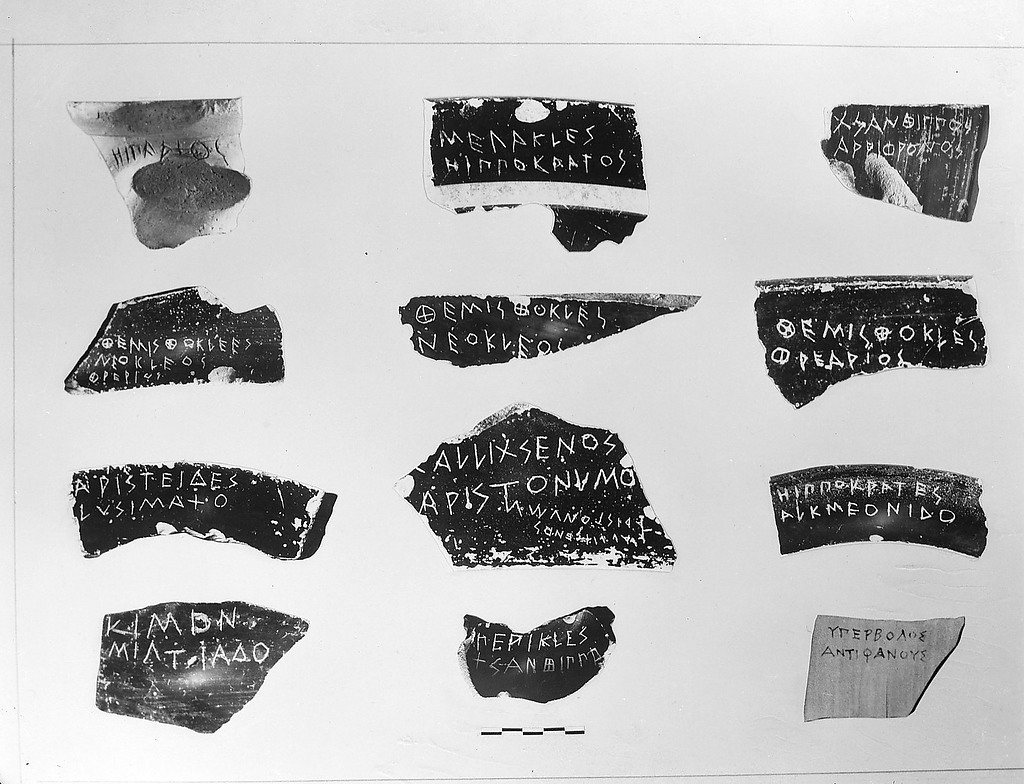 ΗΙΠΑΡ+ΟΣ
ΜΕΛΑΚLΕΣ
ΗΙΠΠΟΚΡΑΤΟΣ
ΧΣΑΝΘΙΠΠΟΣ
ΑΡΡΙΦΡΟΝΟΣ
ΘΕΜΙΣΘΟΚLΕΕΣ
ΝΕΟΚLΕΟΣ
ΘΕΜΙΣΘΟΚLΕΣ
ΝΕΟΚLΕΟΣ
ΘΕΜΙΣΘΟΚLΕΣ
ΦΡΕΑΡΙΟΣ
ΑΡΙΣΤΕΙΔΕΣ
LΥΣΙΜΑ+Ο
ΚΑLLΙΧΣΕΝΟΣ
ΑΡΙΣΤΟΝΥΜΟ
ΗΙΠΠΟΚΡΑΤΕΣ
ΑLΚΜΕΟΝΙΔΟ
ΚΙΜΟΝ
ΜΙLΤΙΑΔΟ
ΠΕΡΙΚLΕΣ
+ΣΑΝΘΙΠΠΟ
ΥΠΕΡΒΟΛΟΣ
ΑΝΤΙΦΑΝΟΥΣ